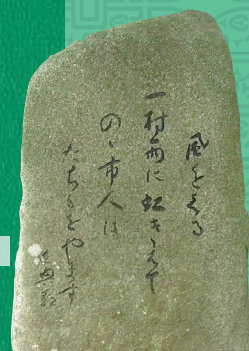 風をくる
一村雨に虹きえて
のゝ市人は
たちもをやます